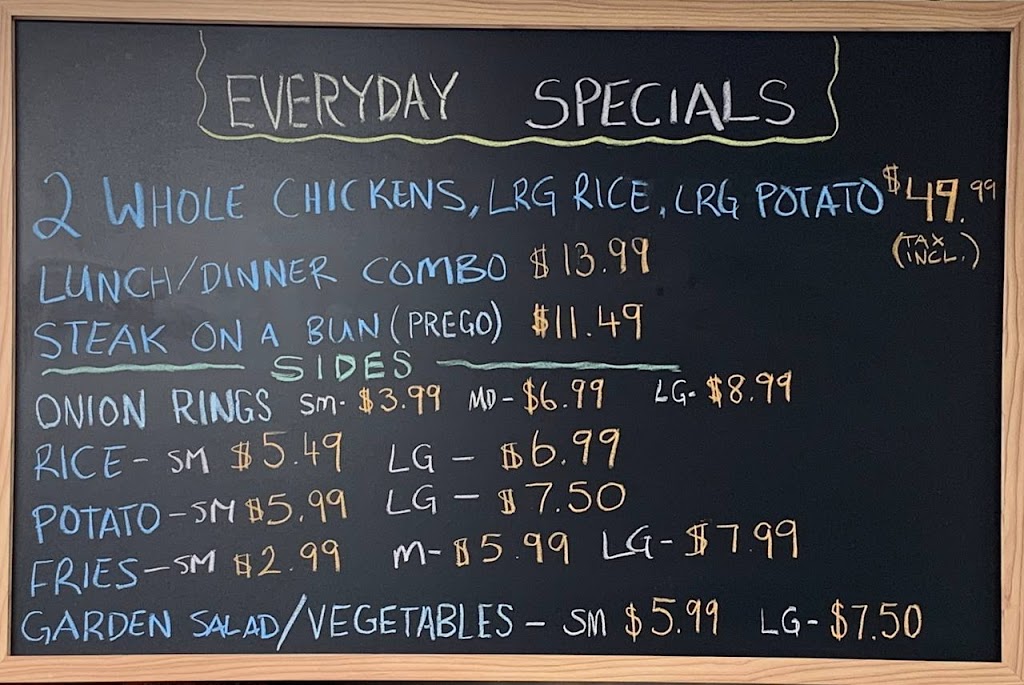 EVERYDAY SPECIALS
2 WHOLE CHICKENS, LRG RICE, LRG POTATO $49.99
(TAX INCL.)
LUNCH/DINNER COMBO $13.99
STEAK ON A BUN (PREGO) $11.49
SIDES
ONION RINGS SM- $3.99 MD- $6.99 LG- $8.99
RICE- SM $5.49 LG - $6.99
POTATO - SM $5.99 LG - $7.50
FRIES - SM $2.99 M- $5.99 LG- $7.99
GARDEN SALAD/VEGETABLES - SM $5.99 LG- $7.50